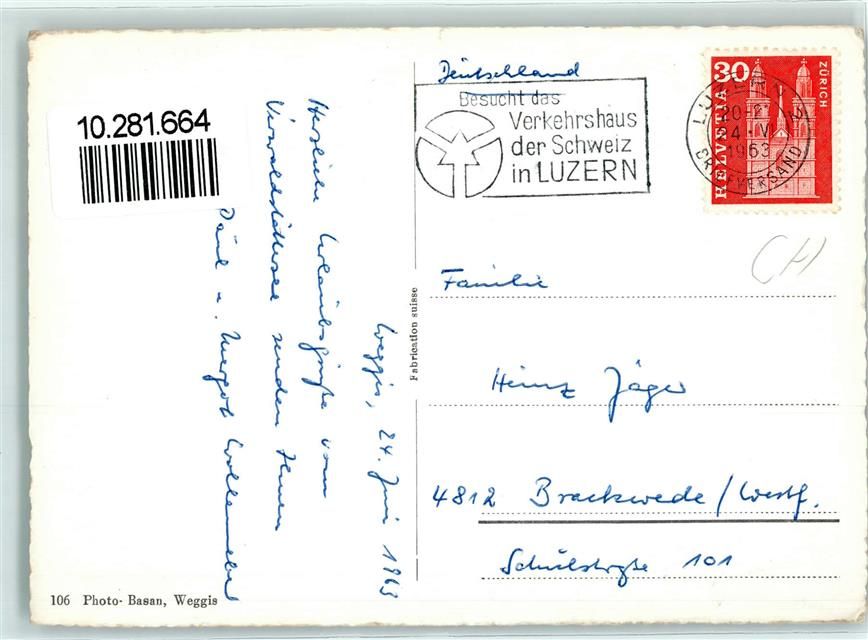 10.281.664
Weggis, 24. Juni 1963
Herzliche Urlaubsgrüße vom
Vierwaldstättersee senden Ihnen
Paul u. Margot
106 Photo-Basan, Weggis
Fabrication suisse
Deutschland
Besucht das
Verkehrshaus
der Schweiz
in LUZERN
30
ZÜRICH
HELVETIA
LUZERN
20-21
1963
BRIEFVERSAND
CH
Familie
Heinz Jäger
4812 Brackwede / Westf.
Schulstraße 101